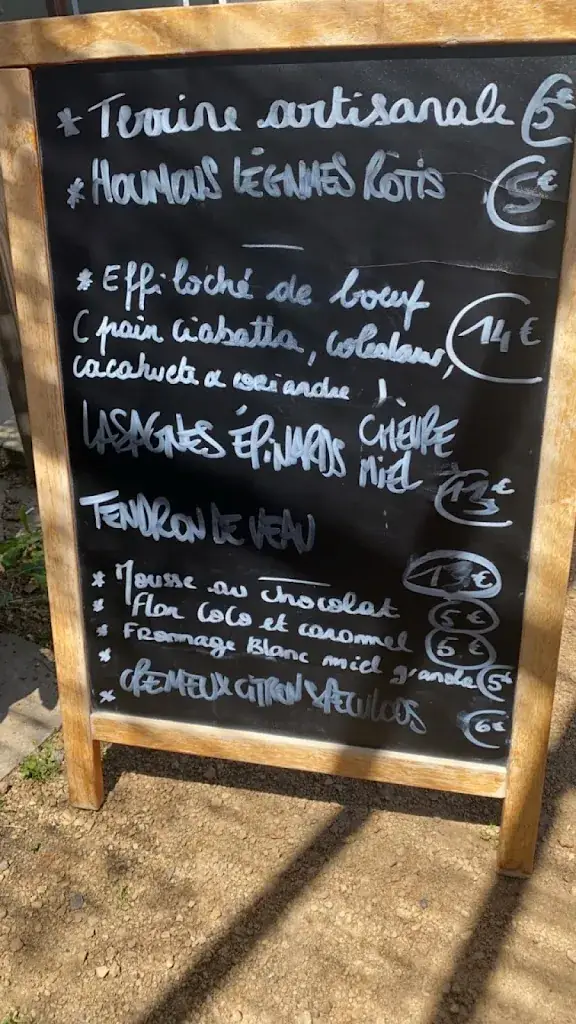 * Terrine artisanale 5€
* HOUMOUS LÉGUMES RÔTIS 5€
* Effiloché de boeuf
( pain ciabatta, coleslaw, 14€
cacahuete & coriandre ).
LASAGNES ÉPINARDS CHEVRE
MIEL
13€
TENDRON DE VEAU
13€
* Mousse au chocolat 5€
* Flan coco et caramel 5€
* Fromage Blanc miel granola 5€
* CREMEUX CITRON SPECULOOS 6€